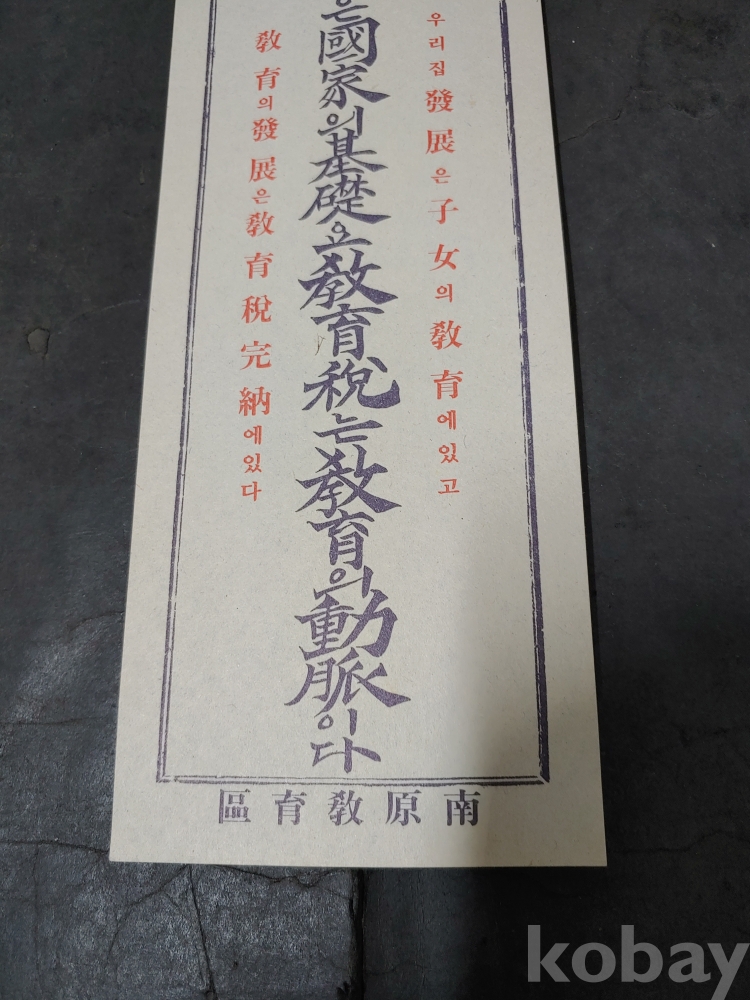 우리집 發展은 子女의 敎育에있고
은 國家의 基礎요 敎育稅는 敎育의 動脈이다
敎育의 發展은 敎育稅完納에있다
南原敎育區
kobay